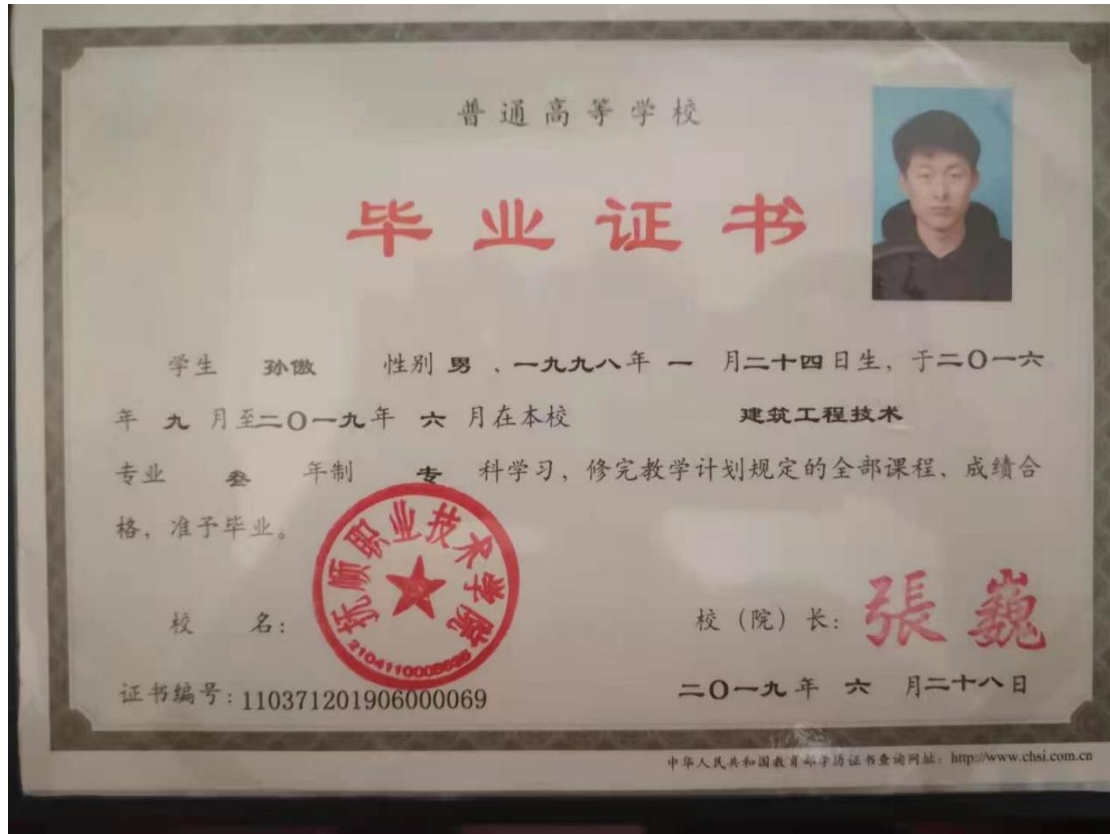 普通高等学校
毕业证书
学生 孙傲 性别 男 、一九九八年 一 月二十四日生，于二〇一六
年 九 月至二〇一九年 六 月在本校 建筑工程技术
专业 叁 年制 专 科学习，修完教学计划规定的全部课程、成绩合
格，准予毕业。
抚顺职业技术学院
校 名：
校（院）长：張巍
证书编号：110371201906000069
二〇一九年 六 月二十八日
中华人民共和国教育部学历证书查询网址：http://www.chsi.com.cn